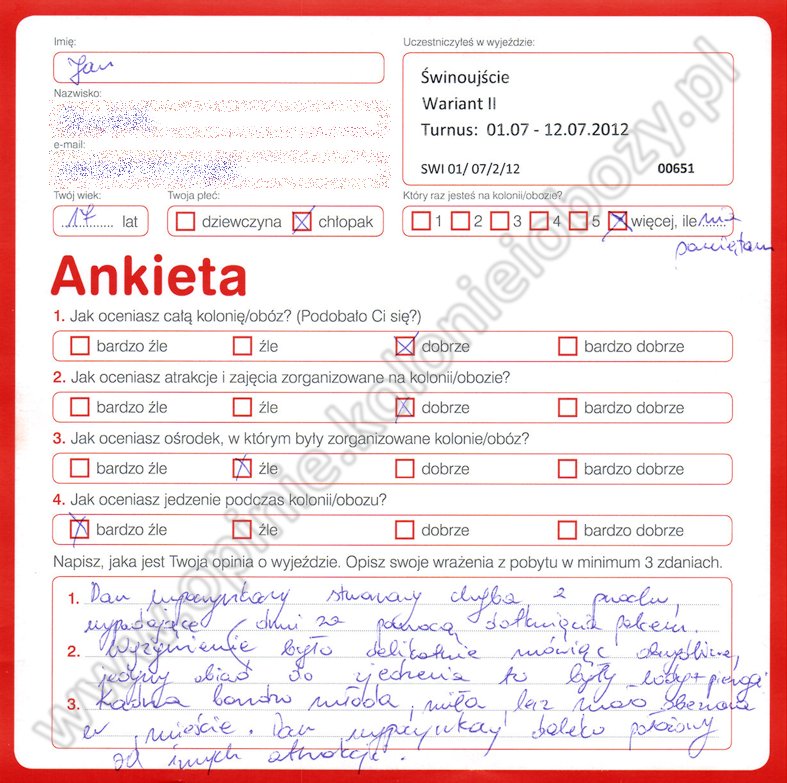 Imię:
Jan
Uczestniczyłeś w wyjeździe:
Świnoujście
Wariant II
Turnus: 01.07 - 12.07.2012
SWI 01/ 07/2/12 00651
Nazwisko:
e-mail:
Twój wiek:
17 lat
Twoja płeć:
dziewczyna chłopak
Który raz jesteś na kolonii/obozie?
1 2 3 4 5 więcej, ile nie
pamiętam
Ankieta
1. Jak oceniasz całą kolonię/obóz? (Podobało Ci się?)
bardzo źle źle dobrze bardzo dobrze
2. Jak oceniasz atrakcje i zajęcia zorganizowane na kolonii/obozie?
bardzo źle źle dobrze bardzo dobrze
3. Jak oceniasz ośrodek, w którym były zorganizowane kolonie/obóz?
bardzo źle źle dobrze bardzo dobrze
4. Jak oceniasz jedzenie podczas kolonii/obozu?
bardzo źle źle dobrze bardzo dobrze
Napisz, jaka jest Twoja opinia o wyjeździe. Opisz swoje wrażenia z pobytu w minimum 3 zdaniach.
1. Dom wypoczynkowy chyba z prochu,
wypadające dmi za pomocą dotknięcia palcem.
2. Wyżywienie było delikatnie mówiąc obrzydliwe,
jedyny obiad do zjedzenia to były lody + pierogi
3. Kadra bardzo młoda, miła lecz mało
w mieście. Dom wypoczynkowy daleko położony
od innych atrakcji.
www.opinie.kolonieiobozy.pl